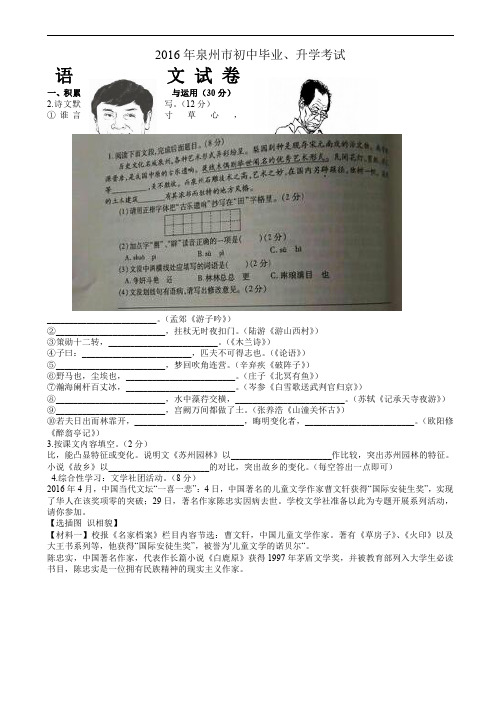 2016 年泉州市初中毕业、升学考试
语 文 试 卷
一、积累 与运用(30 分)
2.诗文默 写。(12 分)
①谁言 寸草心，
1.阅读下面文段,完成后面题目。(8 分)
历史文化名城泉州,各种艺术形式异彩纷呈。梨园剧种是现存宋元南戏的活文物,
是我国中原的古乐遗响。
等________,美不胜收。而泉州石雕技术之高,艺术之妙,在国内另辟蹊径,独树一帜。
的土木建筑________有其浓郁而独特的地方风格。
(1)请用正楷字体把“古乐遗响”抄写在“田”字格里。(2 分)
(2)加点字“塑”、“辟”读音正确的一项是( )(2 分)
A. shuò pì B. sù pì C. sù bì
(3)文段中两横线处应填写的词语是( )(2 分)
A. 争妍斗艳 还 B. 林林总总 更 C. 琳琅满目 也
(4)文段划线句有语病,请写出修改意见。(2 分)
________________________。(孟郊《游子吟》)
②________________________，拄杖无时夜扣门。(陆游《游山西村》)
③策勋十二转，________________________。(《木兰诗》)
④子曰：________________________，匹夫不可得志也。(《论语》)
⑤________________________，梦回吹角连营。(辛弃疾《破阵子》)
⑥野马也，尘埃也，________________________。(庄子《北冥有鱼》)
⑦瀚海阑杆百丈冰，________________________。(岑参《白雪歌送武判官归京》)
⑧________________________，水中藻荇交横，________________________。(苏轼《记承天寺夜游》)
⑨________________________，宫阙万间都做了土。(张养浩《山潼关怀古》)
⑩若夫日出而林霏开，________________________，晦明变化者，________________________。(欧阳修
《醉翁亭记》)
3.按课文内容填空。(2 分)
比，能凸显特征或变化。说明文《苏州园林》以______________________作比较，突出苏州园林的特征。
小说《故乡》以______________________的对比，突出故乡的变化。(每空答出一点即可)
4.综合性学习：文学社团活动。(8 分)
2016 年 4 月，中国当代文坛“一喜一悲”：4 日，中国著名的儿童文学作家曹文轩获得“国际安徒生奖”，实现
了华人在该奖项零的突破；29 日，著名作家陈忠实因病去世。学校文学社准备以此为专题开展系列活动，
请你参加。
【选插图 识相貌】
【材料一】校报《名家档案》栏目内容节选：曹文轩，中国儿童文学作家。著有《草房子》、《火印》以及
大王书系列等，他获得“国际安徒生奖”，被誉为‘儿童文学的诺贝尔“。
陈忠实，中国著名作家，代表作长篇小说《白鹿原》获得 1997 年茅盾文学奖，并被教育部列入大学生必读
书目，陈忠实是一位拥有民族精神的现实主义作家。